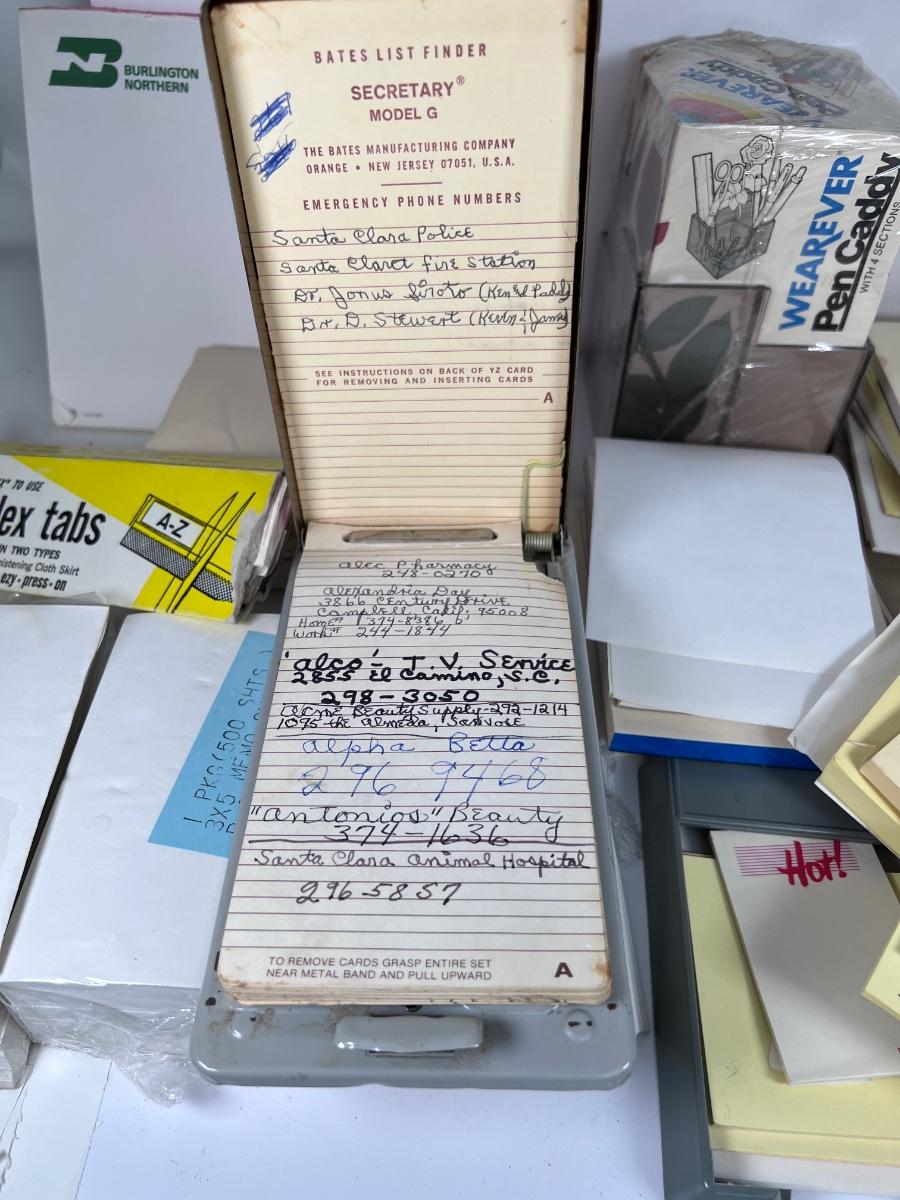 BURLINGTON
NORTHERN
BATES LIST FINDER
SECRETARY®
MODEL G
THE BATES MANUFACTURING COMPANY
ORANGE • NEW JERSEY 07051, U.S.A.
EMERGENCY PHONE NUMBERS
Santa Clara Police
Santa Claret fire Station
Dr. Jonus Siroto (Ken &
Dr. D. Stewart (Kevin &
SEE INSTRUCTIONS ON BACK OF YZ CARD
FOR REMOVING AND INSERTING CARDS
A
alec Pharmacy
248-0270
alexandria Day
3866 Century Drive
Campbell, Calif. 95008
Home# 374-8386
Work# 244-1844
'alco'- T.V. Service
2855 El Camino, S.C.
298-3050
acme Beauty Supply-292-1214
1095 the almeda, San Jose
alpha Betta
296 9468
"antonios" Beauty
374-1636
Santa Clara animal Hospital
296-5857
TO REMOVE CARDS GRASP ENTIRE SET
NEAR METAL BAND AND PULL UPWARD
A
WEAREVER
Pen Caddy
WEAREVER
Pen Caddy
WITH 4 SECTIONS
TO USE
ex tabs
A-Z
IN TWO TYPES
istening Cloth Skirt
ezy·press·on
1 PKG (500 SHTS.)
3X5 MEMO
Hot!